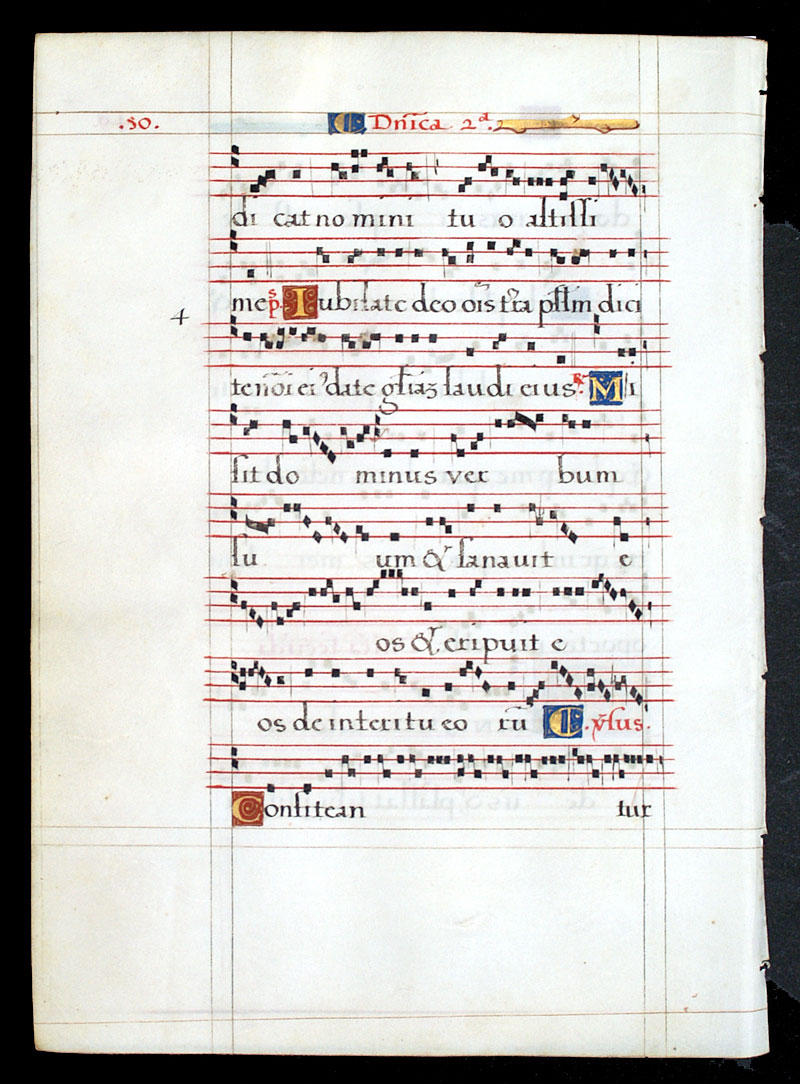 .80. C Dn̄ica 2ª.
di cat no mini tu o altissi
me ps. Iubilate deo oīs t̄ra psl̄m dici
4
te nōi ei' date gl̄iaꝫ laudi eius ℟. Mi
sit do minus ver bum
su um & sanavit e
os & eripuit e
os de interitu eo rū C. v̄sus.
Confitean tur